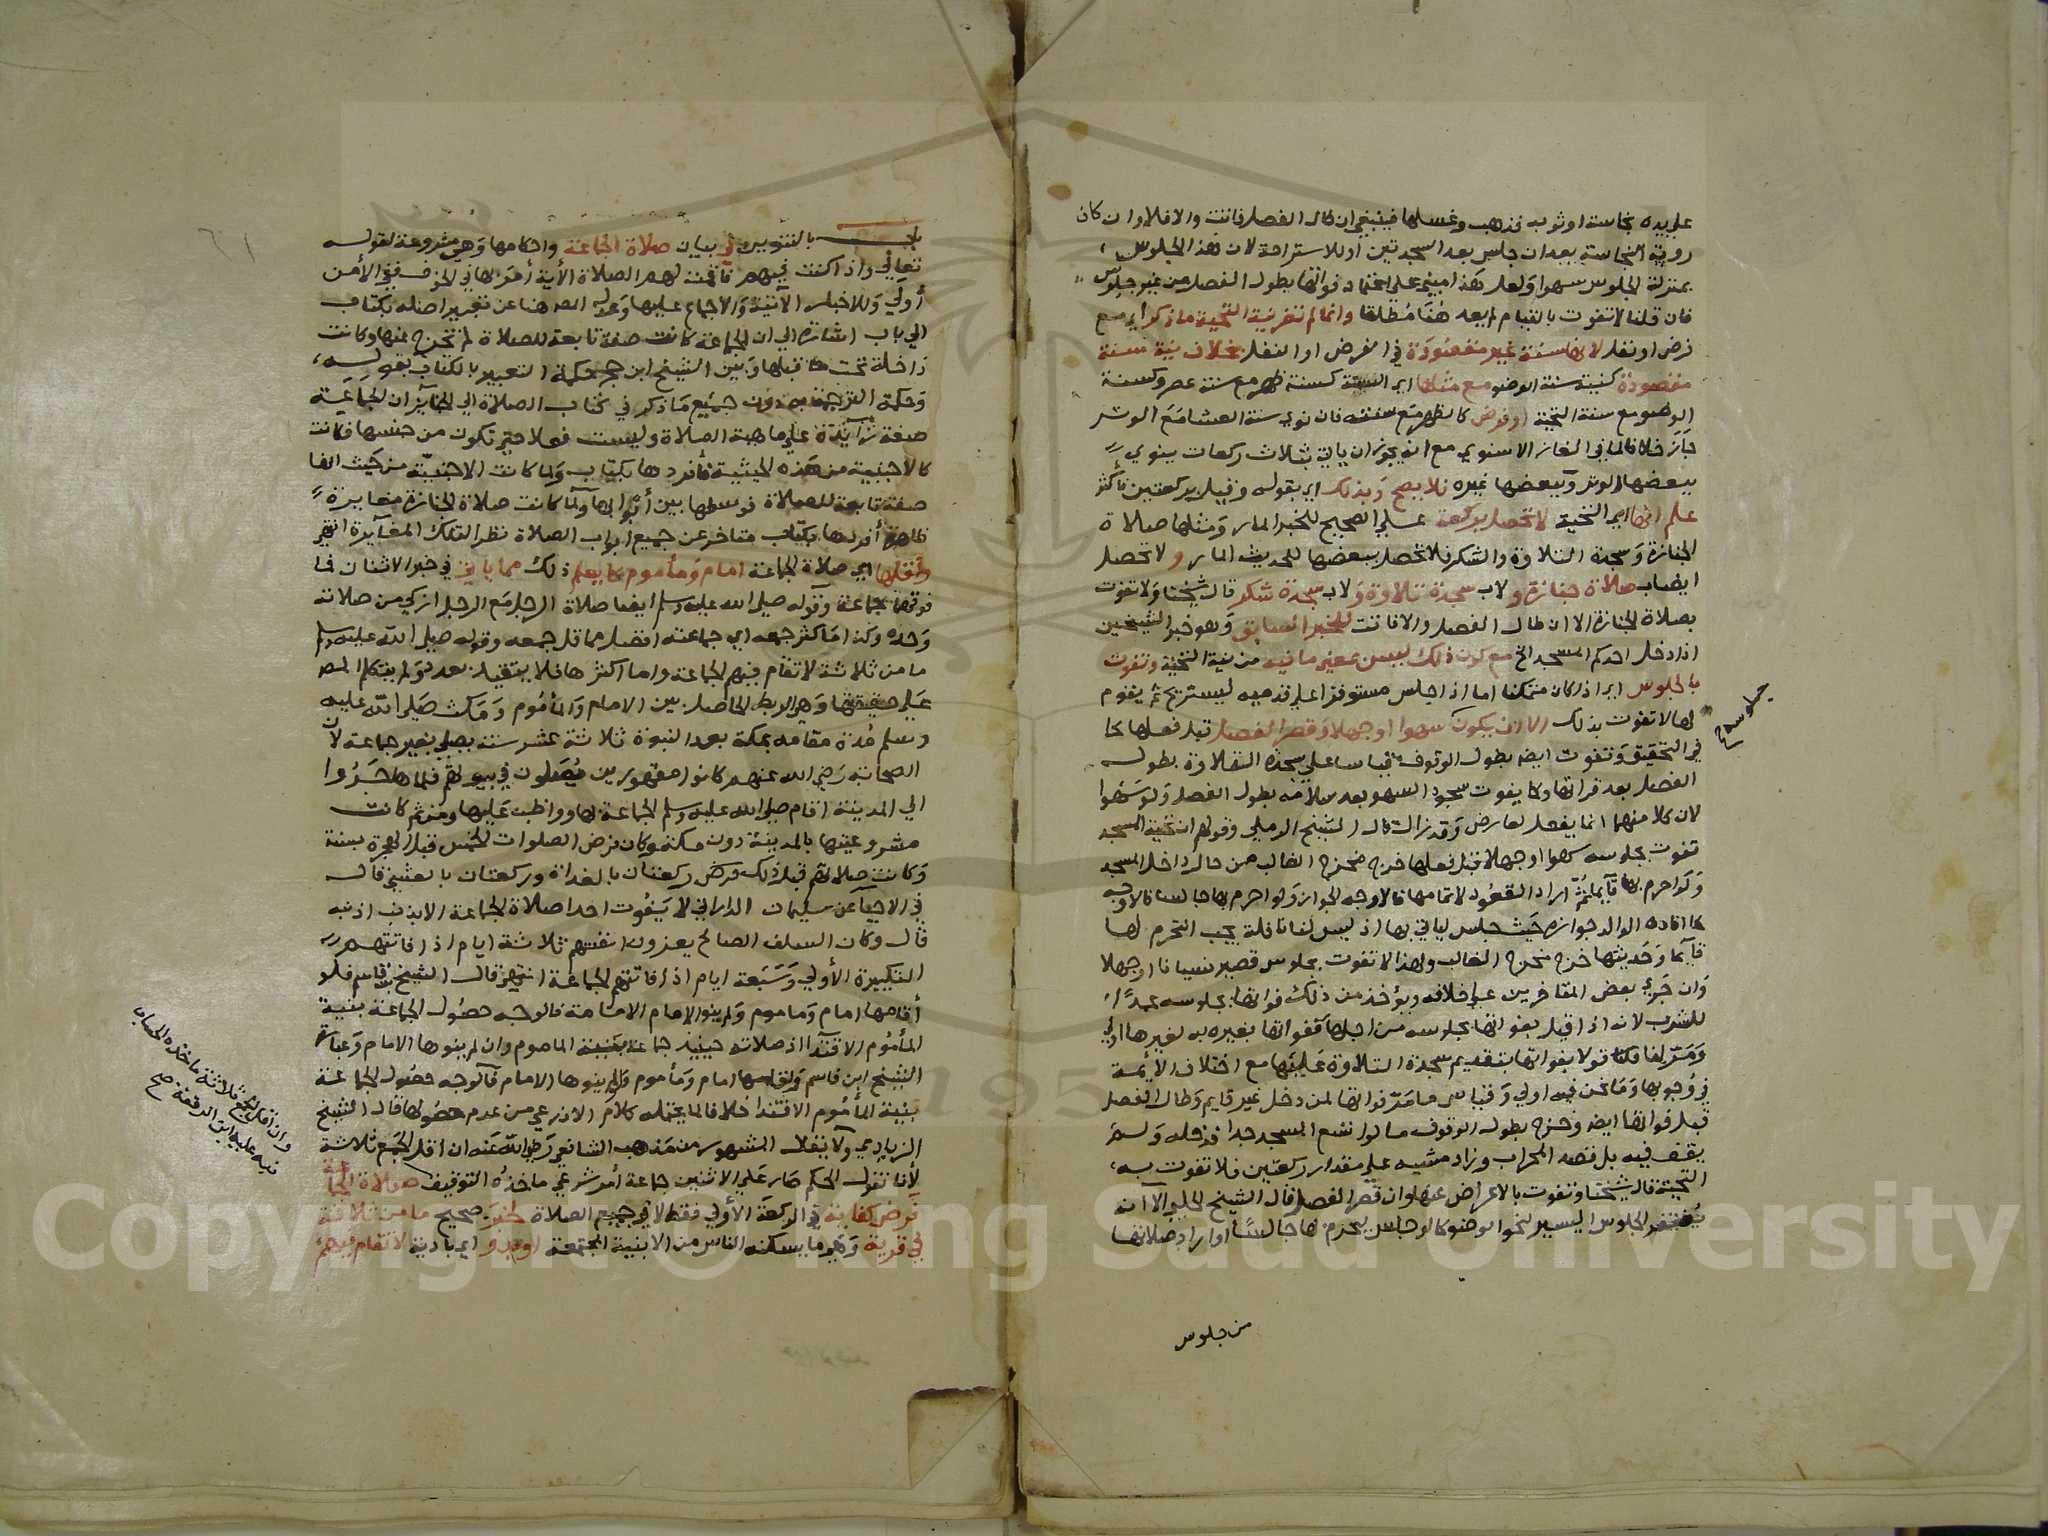 على يده نجاسة او ثوب فذهب وغسلها فينبغي ان طال الفصل فاتت والا فلا وان كان
روية النجاسة بعد ان جلس بعد السجدتين او للاستراحة لان هذا الجلوس
بمنزلة الجلوس سهوا ولعل هذا مبني على اعتماد فواتها بطول الفصل من غير جلوس
فان قلنا لا تفوت بالقيام لم يعد هنا مطلقا وانما لم تضر نية التحية ما ذكر اي مع
فرض او نفل لانها سنة غير مقصودة في الفرض او النفل بخلاف نية سنة
مقصودة كنية سنة الوضو مع مثلها اي السنة كسنة ظهر مع سنة عصر وكسنة
الوضو مع سنة التحية او فرض كالظهر مع سنته فان نوى سنة العشا مع الوتر
جاز خلافا لما في الغاز الاسنوي مع انه يجوز ان ياتي بثلاث ركعات ينوي
ببعضها الوتر وببعضها غيره فلا يصح وبذلك اي بقوله وقيل بركعتين فاكثر
علم انها اي التحية لا تحصل بركعة على الصحيح للخبر المار ومثلها صلاة
الجنازة وسجدة التلاوة والشكر فلا تحصل ببعضها للحديث المار ولا تحصل
ايضا ب صلاة جنازة ولا ب سجدة تلاوة ولا ب سجدة شكر قال شيخنا ولا تفوت
بصلاة الجنازة الا ان طال الفصل والا فاتت للخبر السابق وهو خبر الشيخين
اذا دخل احدكم المسجد الخ مع كون ذلك ليس بمعنى ما فيه من نية التحية وتفوت
بالجلوس اي اذا كان متمكنا اما اذا جلس مستوفزا على قدميه ليستريح ثم يقوم
لها لا تفوت بذلك الا ان يكون سهوا او جهلا وقصر الفصل قبل فعلها كما
جلوسه صح
في التحقيق وتفوت ايضا بطول الوقوف قياسا على سجدة التلاوة بطول
الفصل بعد قراتها وكما يفوت سجود السهو بعد سلامه بطول الفصل ولو سهوا
لان كلا منهما انما يفعل لعارض وقد زال قال الشيخ الرملي وقولهم ان تحية المسجد
تفوت بجلوسه سهوا او جهلا قبل فعلها خرج مخرج الغالب من حال داخل المسجد
ولو احرم بها قايما ثم اراد القعود لاتمامها فالاوجه الجواز ولو احرم بها جالسا فالاوجه
كما افاده الوالد جوازه حيث جلس لياتي بها اذ ليس لنا نافلة يجب التحرم لها
قايما وحديثها خرج مخرج الغالب ولهذا لا تفوت بجلوس قصير نسيانا او جهلا
وان جرى بعض المتاخرين على خلافه ويؤخذ من ذلك فواتها بجلوسه عمدا
للشرب لانه اذا قيل بفواتها بجلوسه من اجلها ففواتها بغيره به لغيرها اولى
ومر لنا كذا قولا بفواتها بتقديم سجدة التلاوة عليها مع اختلاف الايمة
في وجوبها وما نحن فيه اولى وقياس ما مر فواتها لمن دخل غير قايم وطال الفصل
قبل فواتها ايضا وخرج بطول الوقوف ما لو اتسع المسجد جدا فدخله ولم
يقف فيه بل قصد المحراب وزاد مشيه على مقدار ركعتين فلا تفوت به
التحية قال شيخنا وتفوت بالاعراض عنها وان قصر الفصل قال الشيخ الحلبي الا انه
يغتفر الجلوس اليسير لنحو الوضو كما لو جلس يحرم بها جالسا او اراد صلاتها
من جلوس
باب بالتنوين في بيان صلاة الجماعة واحكامها وهي مشروعة لقوله
تعالى واذا كنت فيهم فاقمت لهم الصلاة الاية امر بها في الخوف ففي الامن
اولى وللاخبار الاتية والاجماع عليها وعدل المص هنا عن تعبير اصله بكتاب
الى باب اشارة الى ان الجماعة كانت صفة تابعة للصلاة لم تخرج عنها وكانت
داخلة تحت ما قبلها وبين الشيخ ابن حجر حكمة التعبير بالكتاب بقوله
وحكمة الترجمة به دون جميع ما ذكر في كتاب الصلاة الى الجنايز ان الجماعة
صفة زايدة على ماهية الصلاة وليست فعلا حتى تكون من جنسها فكانت
كالاجنبية من هذه الحيثية فافردها بكتاب ولما كانت الاجنبية من حيث انها
صفة تابعة للصلاة وسطها بين ابوابها ولما كانت صلاة الجنازة مغايرة
ظاهرة افردها بكتاب متاخر عن جميع ابواب الصلاة نظرا لتلك المغايرة انتهى
واقلها اي صلاة الجماعة امام ومأموم كما يعلم ذلك مما ياتي في خبر الاثنان فما
فوقهما جماعة وقوله صلى الله عليه وسلم ايضا صلاة الرجل مع الرجل ازكى من صلاته
وحده وكذا ما كثر جمعه اي جماعته افضل مما قل جمعه وقوله صلى الله عليه وسلم
ما من ثلاثة لا تقام فيهم الجماعة واما اكثرها فلا يتقيد بعدد ولم يتكلم المص
على حقيقتها وهي الربط الحاصل بين الامام والماموم ومكث صلى الله عليه
وسلم مدة مقامه بمكة بعد النبوة ثلاثة عشر سنة يصلي بغير جماعة لان
الصحابة رضي الله عنهم كانوا مقهورين يصلون في بيوتهم فلما هاجروا
الى المدينة اقام صلى الله عليه وسلم الجماعة لها وواظب عليها ومن ثم كانت
مشروعيتها بالمدينة دون مكة وكان فرض الصلوات الخمس قبل الهجرة بسنة
وكانت صلاتهم قبل ذلك فرض ركعتان بالغداة وركعتان بالعشي قال
في الاحيا عن سليمان الداراني لا يفوت احدا صلاة الجماعة الا بذنب اذنبه
قال وكان السلف الصالح يعزون انفسهم ثلاثة ايام اذا فاتتهم
التكبيرة الاولى وسبعة ايام اذا فاتتهم الجماعة انتهى قال الشيخ بن قاسم فلو
اقامها امام وماموم ولم ينو الامام الامامة فالوجه حصول الجماعة بنية
المأموم الاقتدا اذ صلاته حينيذ جماعة بنية الماموم وان لم ينوها الامام وعبارة
الشيخ ابن قاسم ولو اقامها امام ومأموم ولم ينوها الامام فالوجه حصول الجماعة
بنية المأموم الاقتدا خلافا لما يحتمله كلام الاذرعي من عدم حصولها قال الشيخ
الزيادي ولا يقال المشهور من مذهب الشافعي رضي الله عنه ان اقل الجمع ثلاثة
لانا نقول الحكم صار على الاثنين جماعة امر شرعي ماخذه التوقيف صلاة الجماعة
فرض كفاية في الركعة الاولى فقط لا في جميع الصلاة لخبر صحيح ما من ثلاثة
في قرية وهو ما يسكنه الناس من الابنية المجتمعة او بدو اي بادية لا تقام فيهم
وان اقل الجمع ثلاثة ماخذه اللسان
نبه عليه ابن الرفعة صح
Copyright © King Saud University
1957